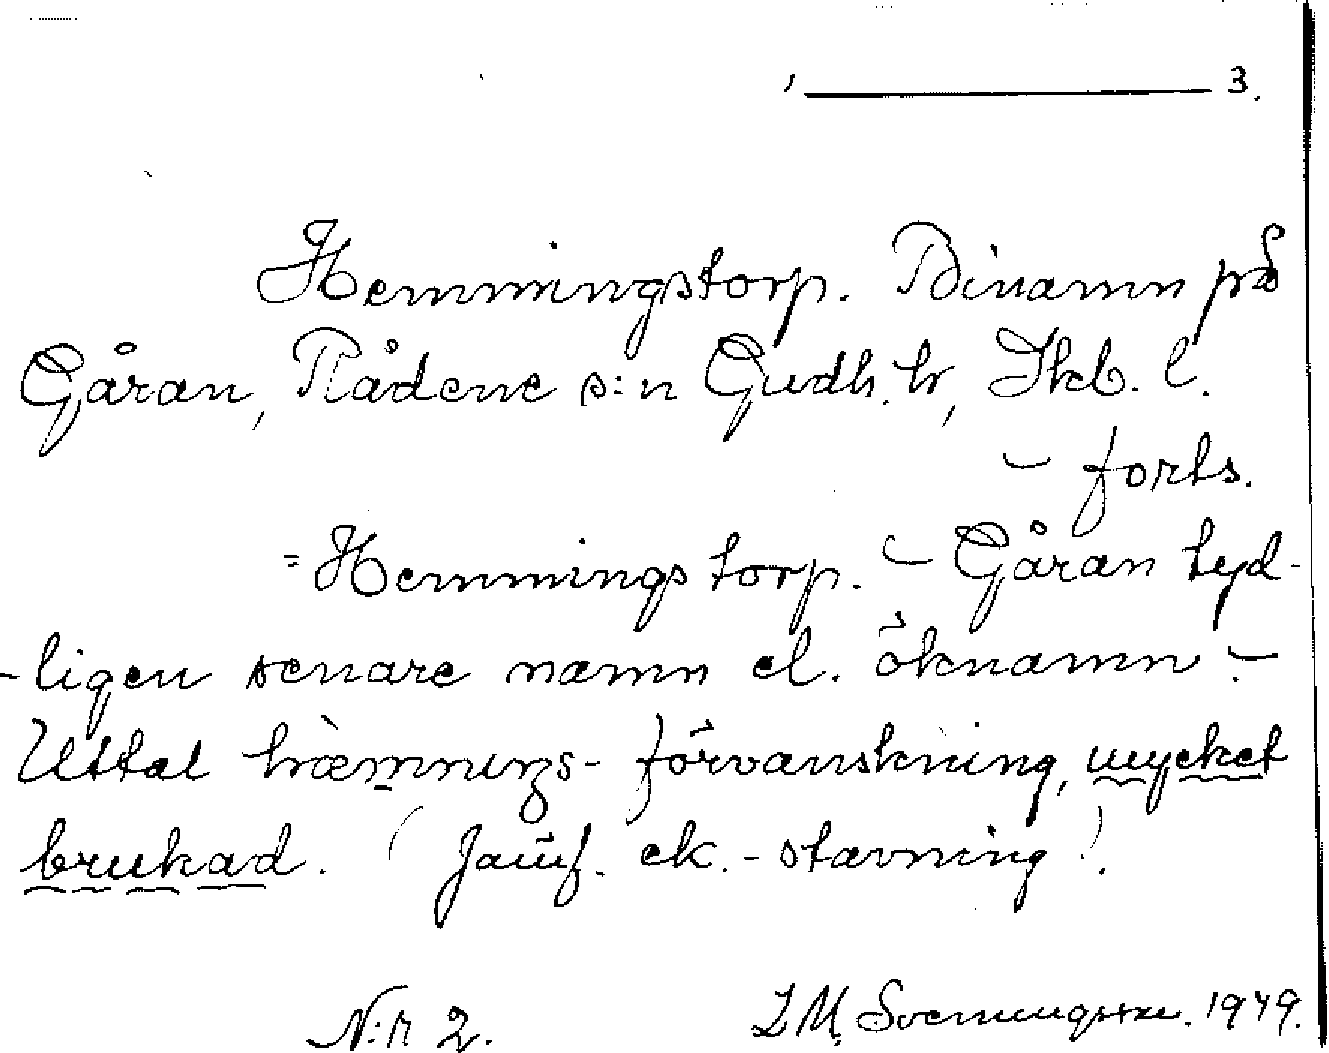 3.
Hemmingstorp. Binamn på
Gåran, Rådene s:n Gudh. hr, Skb. l.
– forts.
= Hemmingstorp. – Gåran tyd-
-ligen senare namn el. öknamn –
Uttal hræmnings- förvanskning, mycket
brukad. (Jämf. ek. - stavning!).
N:r 2. L M, Svenungsson. 1949.